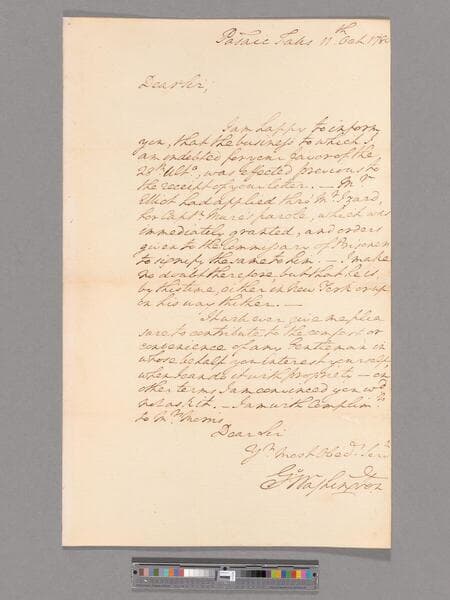 Passaic Falls 11th Oct. 178
Dear Sir,
I am happy to inform
you, that the business to which I
am indebted for your favor of the
28th Ulto, was effected previous to
the receipt of your letter. — Mr
Elliot had applied thro' Mr Izard,
for Captn Mure's parole, which was
immediately granted, and orders
given to the Commissary of Prisoners
to signify the same to him. — I make
no doubt therefore but that he is
by this time, either in New York or up
on his way thither. —
It will ever give me plea
sure to contribute to the comfort or
convenience of any Gentleman in
whose behalf you interest yourself,
when I can do it with propriety — on
other terms I am convinced you wd
not ask it. — I am with Complimts
to Mrs Morris
Dear Sir
Yr Most Obedt Servt
Go Washington